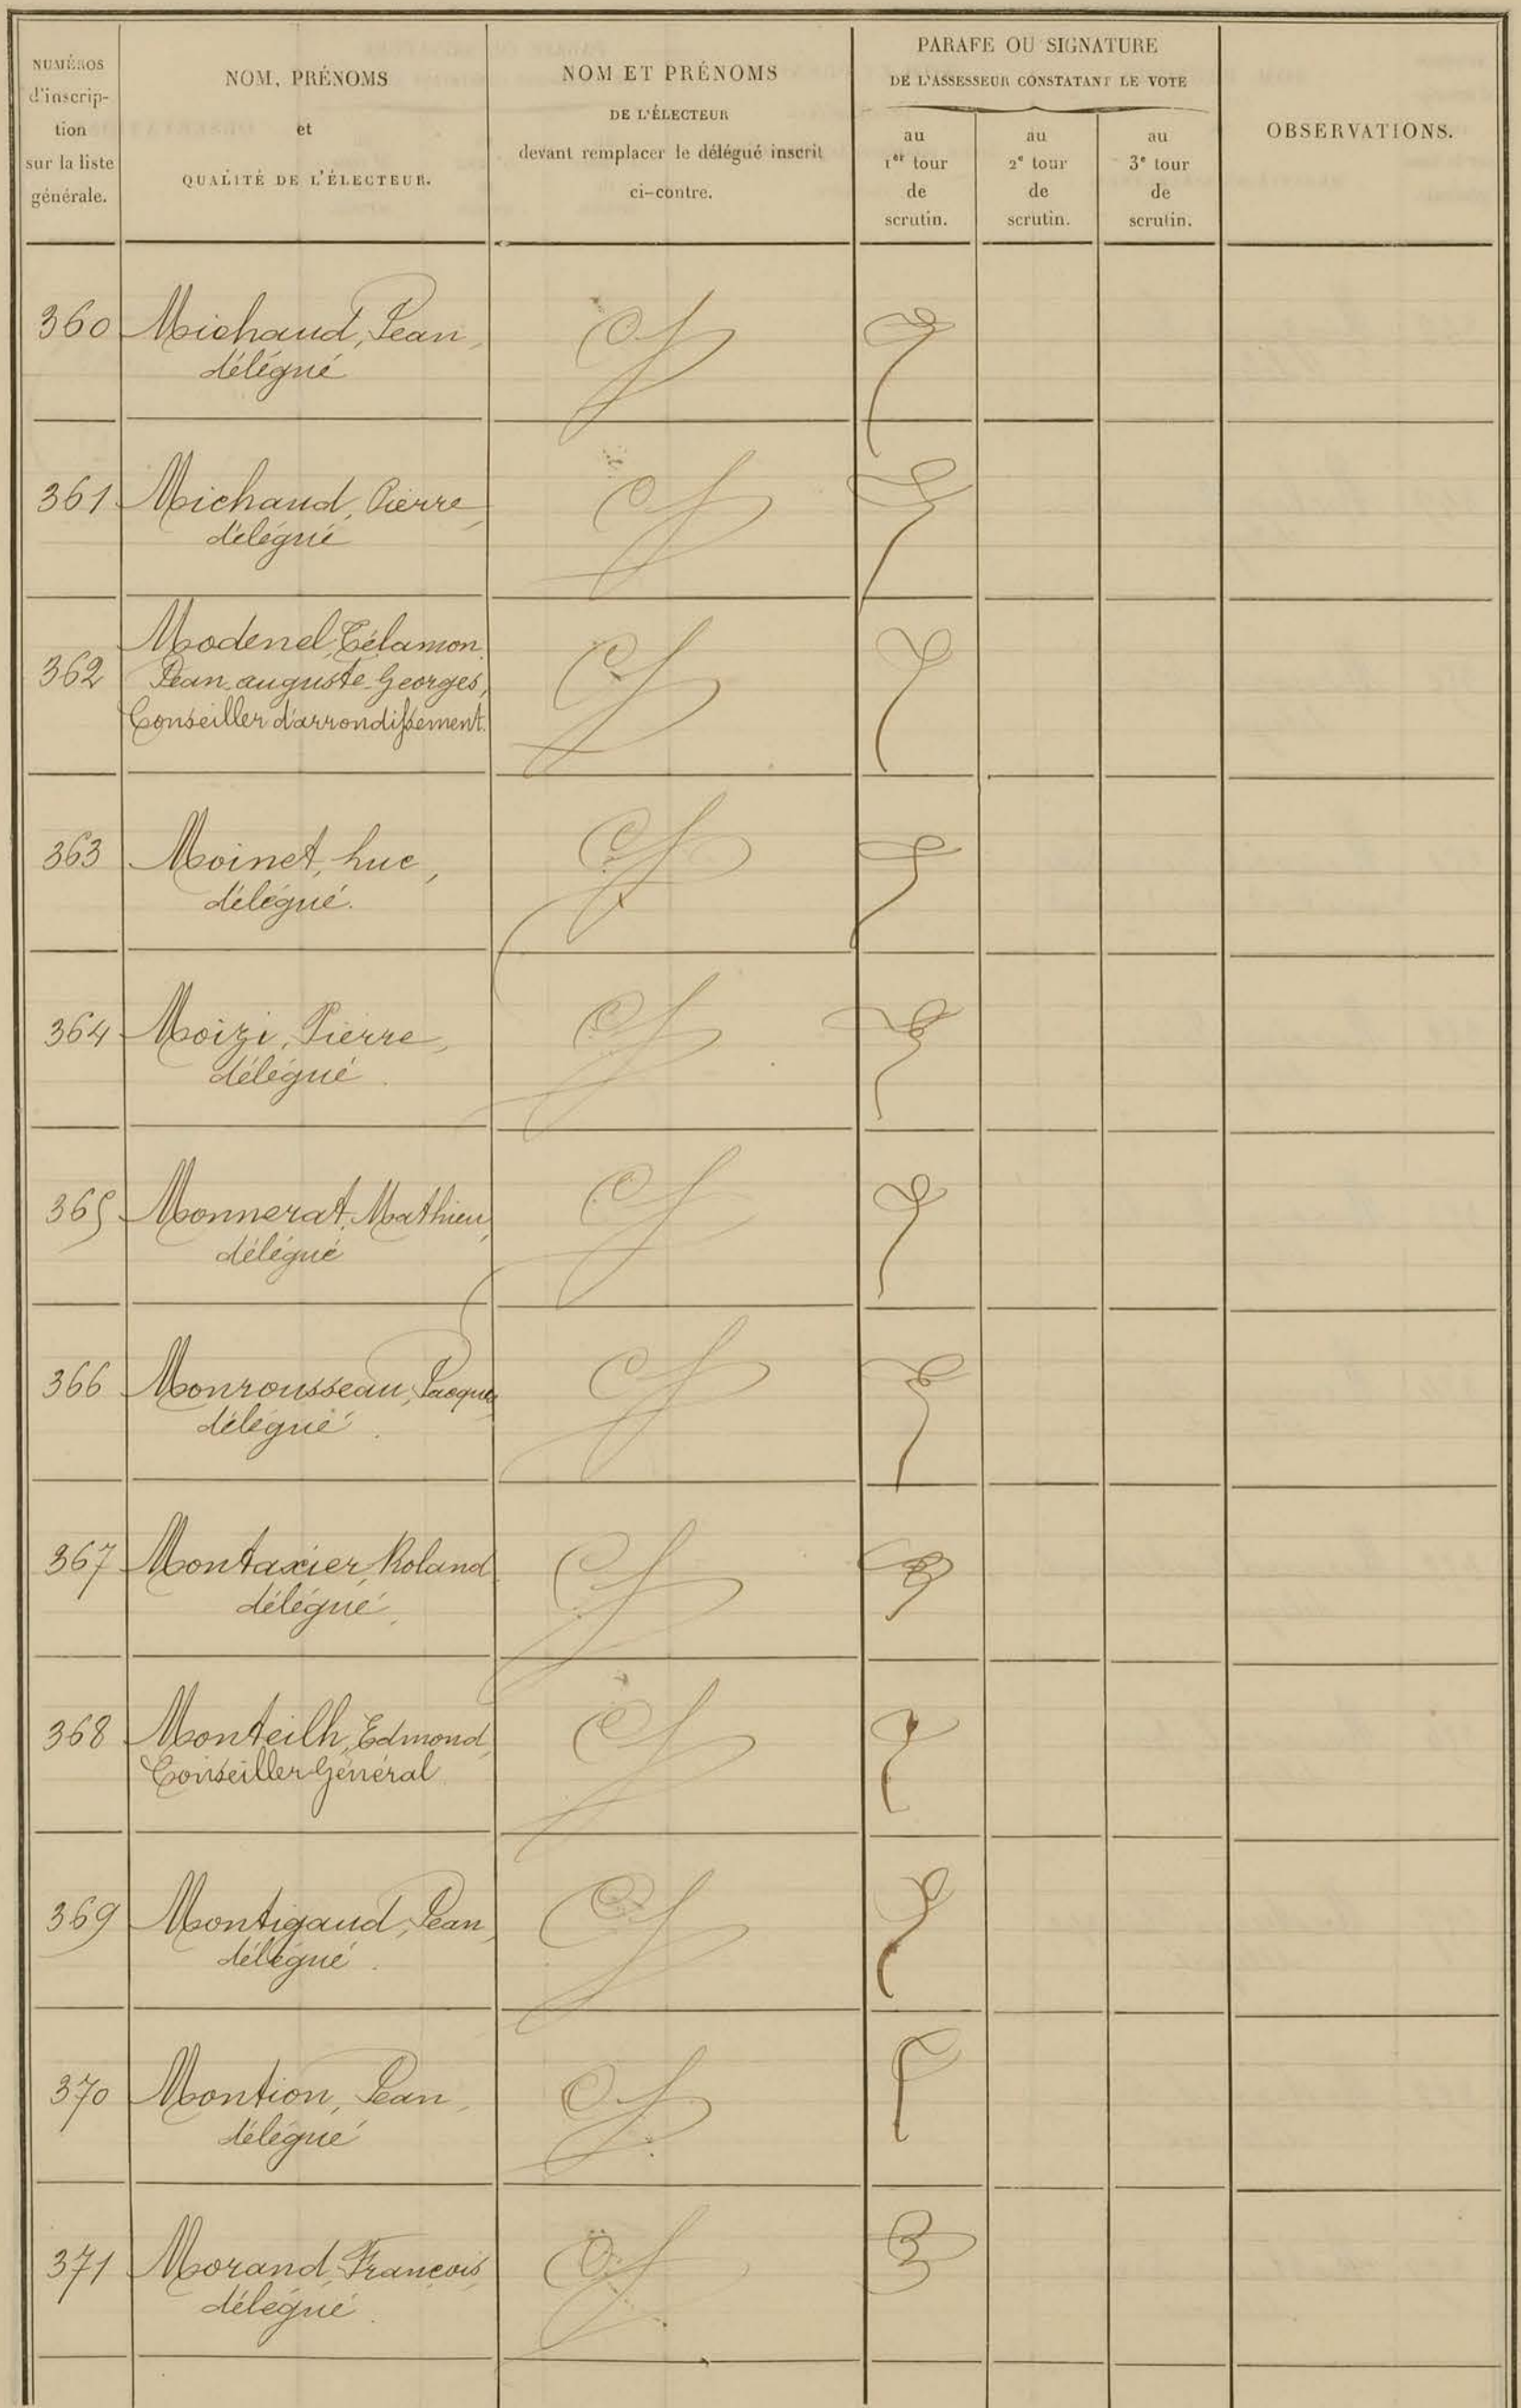 NUMÉROS
d'inscrip-
tion
sur la liste
générale.
NOM, PRÉNOMS
et
QUALITÉ DE L'ÉLECTEUR.
NOM ET PRÉNOMS
DE L'ÉLECTEUR
devant remplacer le délégué inscrit
ci-contre.
PARAFE OU SIGNATURE
DE L'ASSESSEUR CONSTATANT LE VOTE
au
1er tour
de
scrutin.
au
2e tour
de
scrutin.
au
3e tour
de
scrutin.
OBSERVATIONS.
360 Michaud, Jean,
délégué
361 Michaud, Pierre,
délégué
Modenel, Télamon
362 Jean-auguste-Georges,
Conseiller d'arrondissement.
363 Moinet, Luc,
délégué.
364 Moizi, Pierre,
délégué.
365 Monnerat, Mathieu,
délégué
366 Monrousseau, Jacques,
délégué.
367 Montaxier, Roland
délégué,
368 Monteilh, Edmond,
Conseiller Général
369 Montigaud, Jean,
délégué.
370 Montion, Jean,
délégué
371 Morand, François,
délégué.